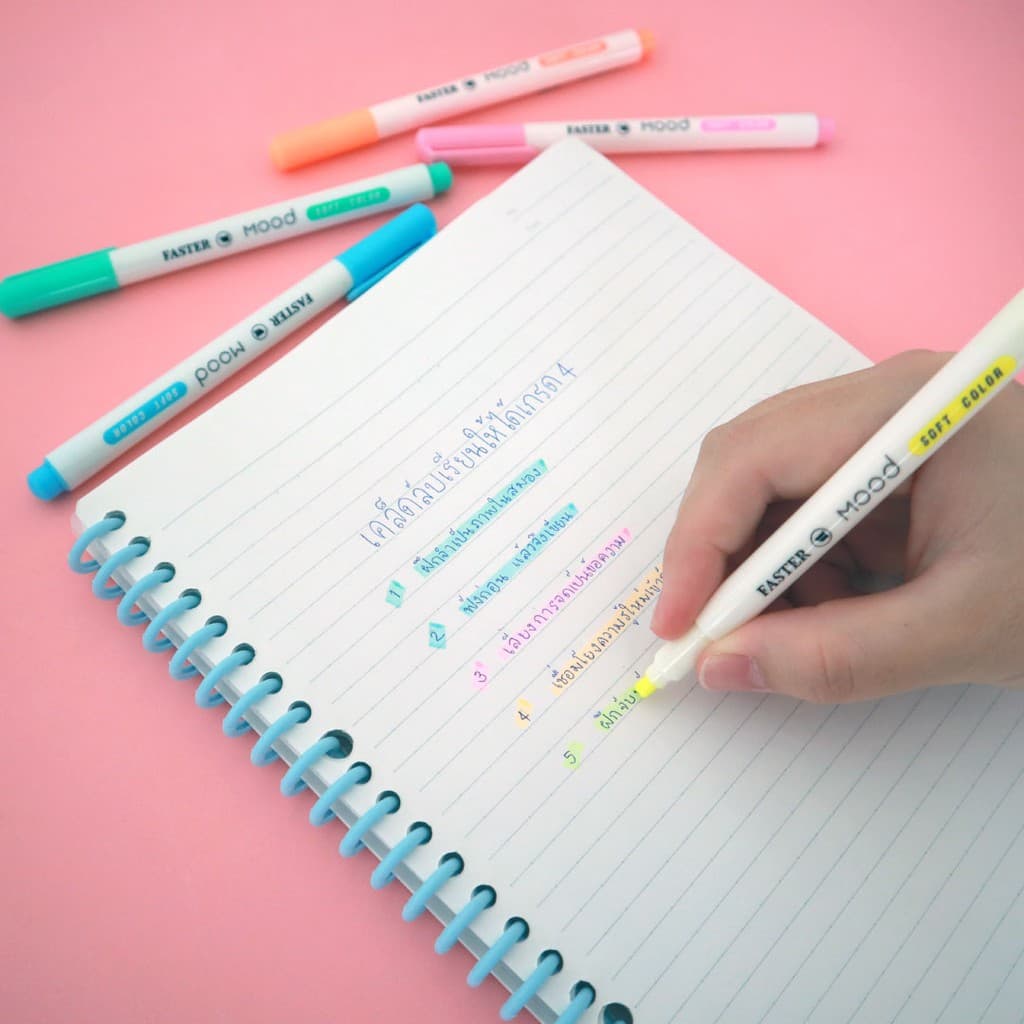 FASTER MOOD SOFT COLOR
FASTER MOOD SOFT COLOR
FASTER MOOD SOFT COLOR
FASTER MOOD SOFT COLOR
เคล็ดลับเรียนให้ได้เกรด 4
1 ฝึกจำเป็นภาพในสมอง
2 ฟังก่อน แล้วจึงเขียน
3 เลี่ยงการจดเป็นข้อความ
4 เชื่อมโยงความรู้ใหม่
5 ฝึกจับ
FASTER MOOD SOFT COLOR